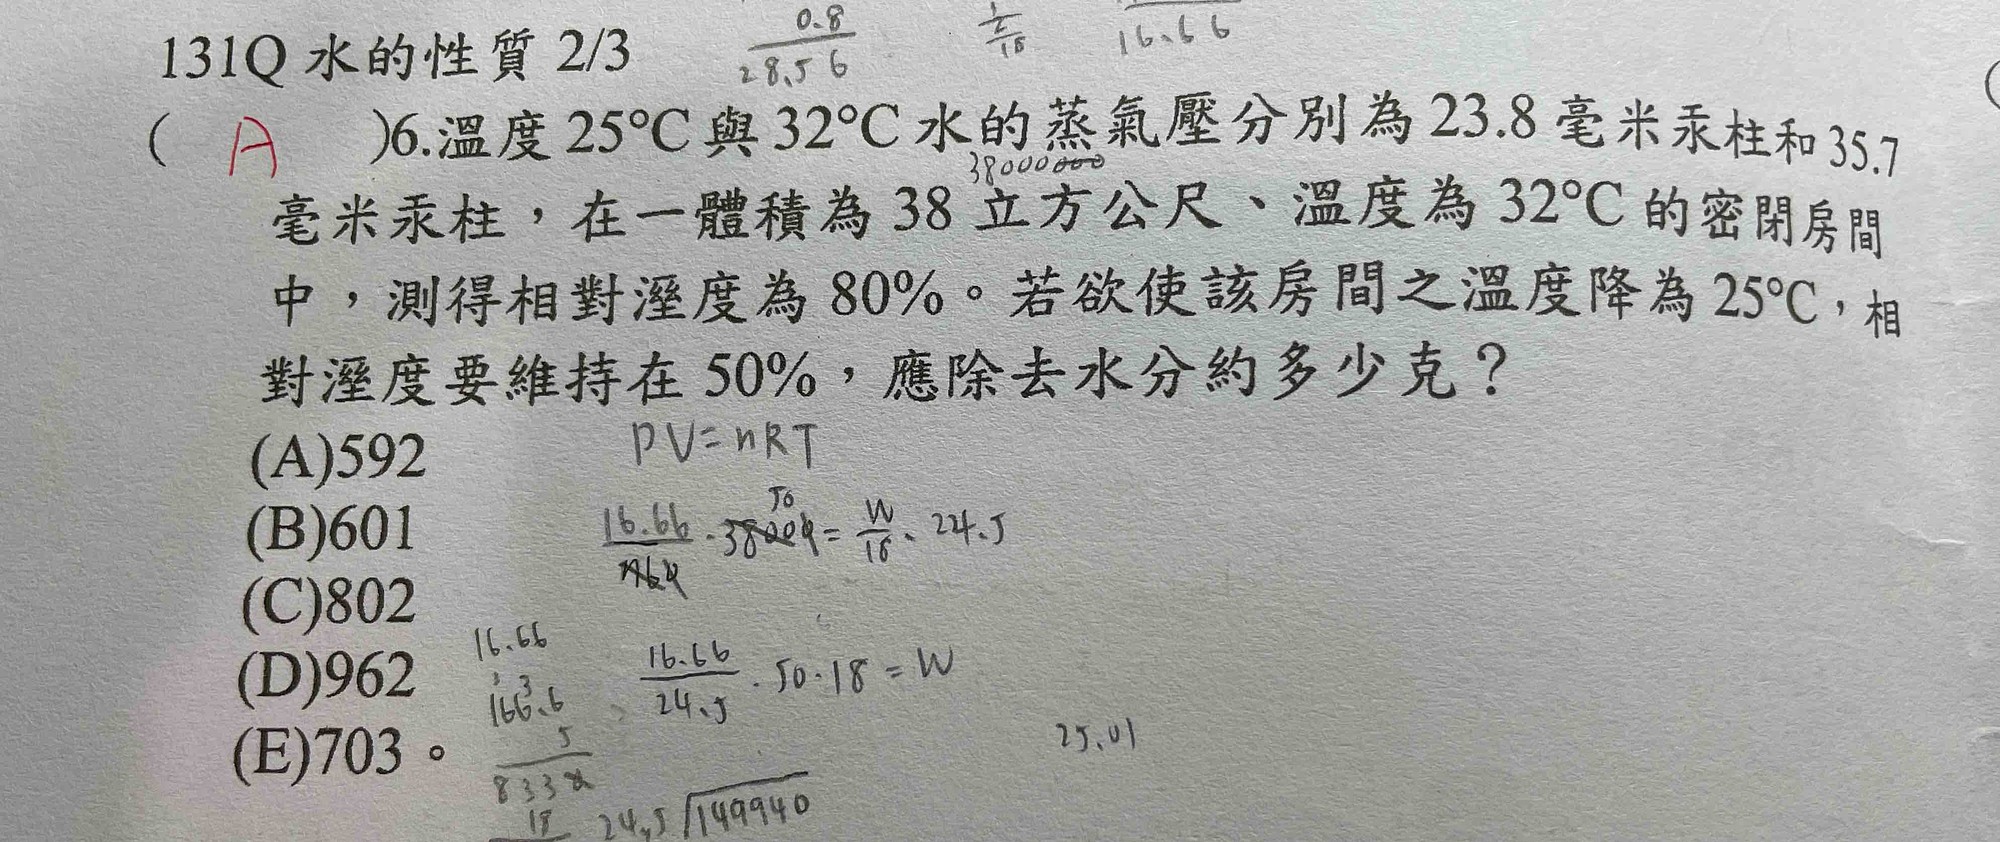 0.8
28.56
16.66
131Q 水的性質 2/3
( A )6.溫度 25°C 與 32°C 水的蒸氣壓分別為 23.8 毫米汞柱和 35.7
38000000
毫米汞柱，在一體積為 38 立方公尺、溫度為 32°C 的密閉房間
中，測得相對溼度為 80%。若欲使該房間之溫度降為 25°C，相
對溼度要維持在 50%，應除去水分約多少克？
(A)592
PV=nRT
(B)601
50
16.66/760 · 38000 = W/18 · 24.5
(C)802
(D)962
16.66
166.6
5
833
18
16.66/24.5 · 50 · 18 = W
(E)703。
25.01
24.5 149940